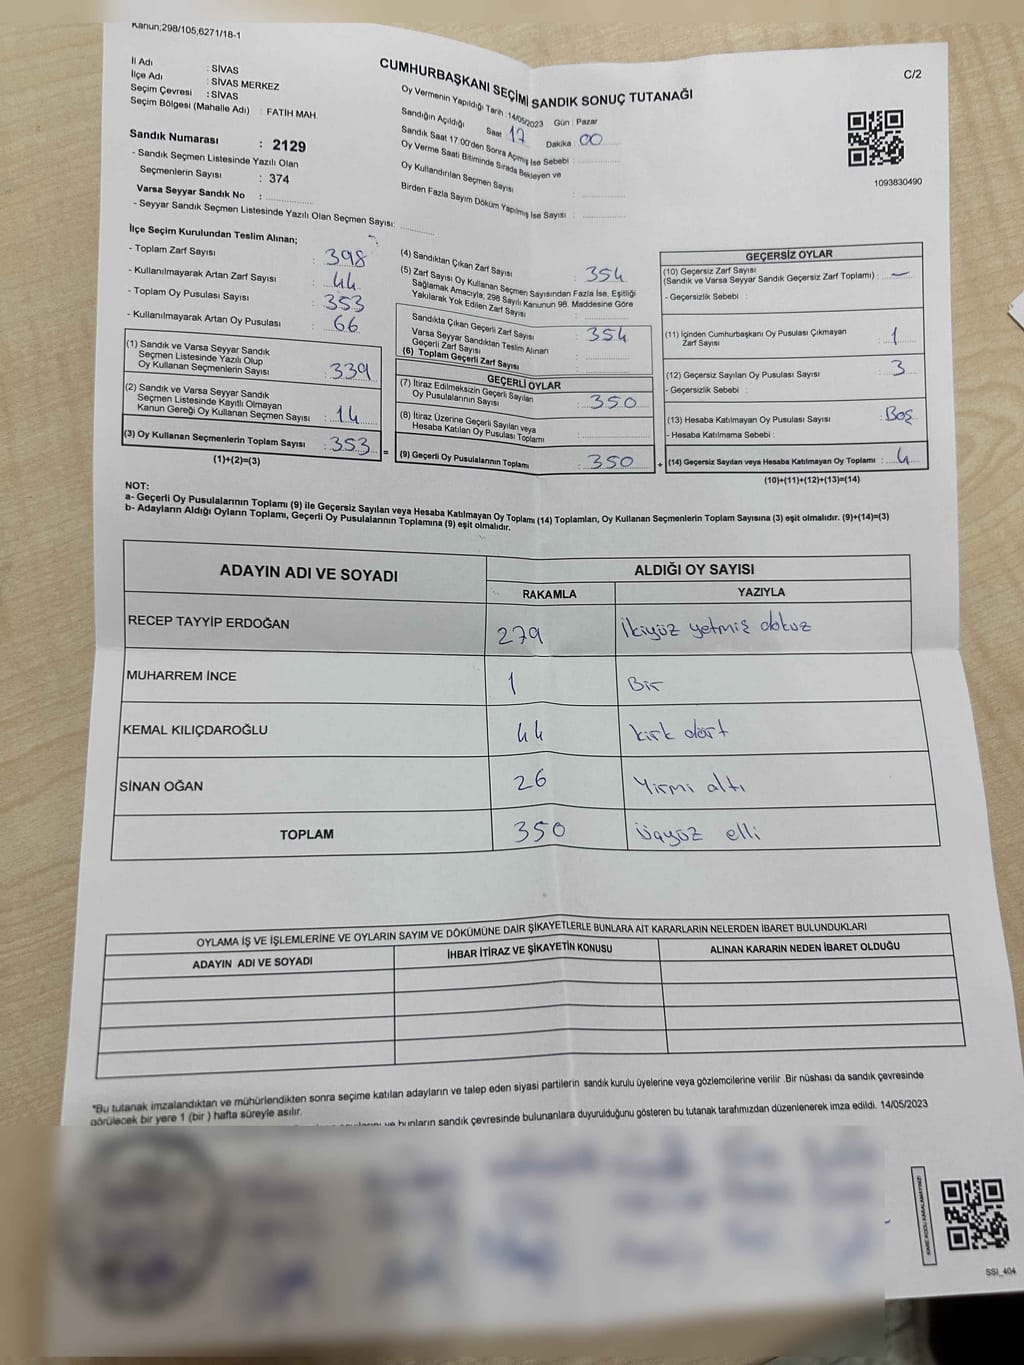 Kanun;298/105;6271/18-1
CUMHURBAŞKANI SEÇİMİ SANDIK SONUÇ TUTANAĞI
C/2
İl Adı : SİVAS
İlçe Adı : SİVAS MERKEZ
Seçim Çevresi : SİVAS
Seçim Bölgesi (Mahalle Adı) : FATİH MAH.
Sandık Numarası : 2129
- Sandık Seçmen Listesinde Yazılı Olan
Seçmenlerin Sayısı : 374
Varsa Seyyar Sandık No :
- Seyyar Sandık Seçmen Listesinde Yazılı Olan Seçmen Sayısı:
Oy Vermenin Yapıldığı Tarih :14/05/2023 Gün : Pazar
Sandığın Açıldığı Saat : 17 Dakika : 00
Sandık Saat 17:00'den Sonra Açılmış İse Sebebi :
Oy Verme Saati Bitiminde Sırada Bekleyen ve
Oy Kullandırılan Seçmen Sayısı :
Birden Fazla Sayım Döküm Yapılmış İse Sayısı :
1093830490
İlçe Seçim Kurulundan Teslim Alınan;
- Toplam Zarf Sayısı : 398
- Kullanılmayarak Artan Zarf Sayısı : 44
- Toplam Oy Pusulası Sayısı : 353
- Kullanılmayarak Artan Oy Pusulası : 66
(1) Sandık ve Varsa Seyyar Sandık
Seçmen Listesinde Yazılı Olup
Oy Kullanan Seçmenlerin Sayısı : 339
(2) Sandık ve Varsa Seyyar Sandık
Seçmen Listesinde Kayıtlı Olmayan
Kanun Gereği Oy Kullanan Seçmen Sayısı : 14
(3) Oy Kullanan Seçmenlerin Toplam Sayısı : 353
(1)+(2)=(3)
=
(4) Sandıktan Çıkan Zarf Sayısı : 354
(5) Zarf Sayısı Oy Kullanan Seçmen Sayısından Fazla İse, Eşitliği
Sağlamak Amacıyla; 298 Sayılı Kanunun 98. Maddesine Göre
Yakılarak Yok Edilen Zarf Sayısı :
Sandıkta Çıkan Geçerli Zarf Sayısı : 354
Varsa Seyyar Sandıktan Teslim Alınan
Geçerli Zarf Sayısı :
(6) Toplam Geçerli Zarf Sayısı :
GEÇERLİ OYLAR
(7) İtiraz Edilmeksizin Geçerli Sayılan
Oy Pusulalarının Sayısı : 350
(8) İtiraz Üzerine Geçerli Sayılan veya
Hesaba Katılan Oy Pusulası Toplamı :
(9) Geçerli Oy Pusulalarının Toplamı : 350
+
GEÇERSİZ OYLAR
(10) Geçersiz Zarf Sayısı
(Sandık ve Varsa Seyyar Sandık Geçersiz Zarf Toplamı) : —
- Geçersizlik Sebebi :
(11) İçinden Cumhurbaşkanı Oy Pusulası Çıkmayan
Zarf Sayısı : 1
(12) Geçersiz Sayılan Oy Pusulası Sayısı : 3
- Geçersizlik Sebebi :
(13) Hesaba Katılmayan Oy Pusulası Sayısı : Boş
- Hesaba Katılmama Sebebi :
(14) Geçersiz Sayılan veya Hesaba Katılmayan Oy Toplamı : 4
(10)+(11)+(12)+(13)=(14)
NOT:
a- Geçerli Oy Pusulalarının Toplamı (9) ile Geçersiz Sayılan veya Hesaba Katılmayan Oy Toplamı (14) Toplamları, Oy Kullanan Seçmenlerin Toplam Sayısına (3) eşit olmalıdır. (9)+(14)=(3)
b- Adayların Aldığı Oyların Toplamı, Geçerli Oy Pusulalarının Toplamına (9) eşit olmalıdır.
ADAYIN ADI VE SOYADI ALDIĞI OY SAYISI
RAKAMLA YAZIYLA
RECEP TAYYİP ERDOĞAN 279 İkiyüz yetmiş dokuz
MUHARREM İNCE 1 Bir
KEMAL KILIÇDAROĞLU 44 kırk dört
SİNAN OĞAN 26 Yirmi altı
TOPLAM 350 Üçyüz elli
OYLAMA İŞ VE İŞLEMLERİNE VE OYLARIN SAYIM VE DÖKÜMÜNE DAİR ŞİKAYETLERLE BUNLARA AİT KARARLARIN NELERDEN İBARET BULUNDUKLARI
ADAYIN ADI VE SOYADI İHBAR İTİRAZ VE ŞİKAYETİN KONUSU ALINAN KARARIN NEDEN İBARET OLDUĞU
*Bu tutanak imzalandıktan ve mühürlendikten sonra seçime katılan adayların ve talep eden siyasi partilerin sandık kurulu üyelerine veya gözlemcilerine verilir .Bir nüshası da sandık çevresinde
görülecek bir yere 1 (bir ) hafta süreyle asılır.
ve bunların sandık çevresinde bulunanlara duyurulduğunu gösteren bu tutanak tarafımızdan düzenlenerek imza edildi. 14/05/2023
SSI_404